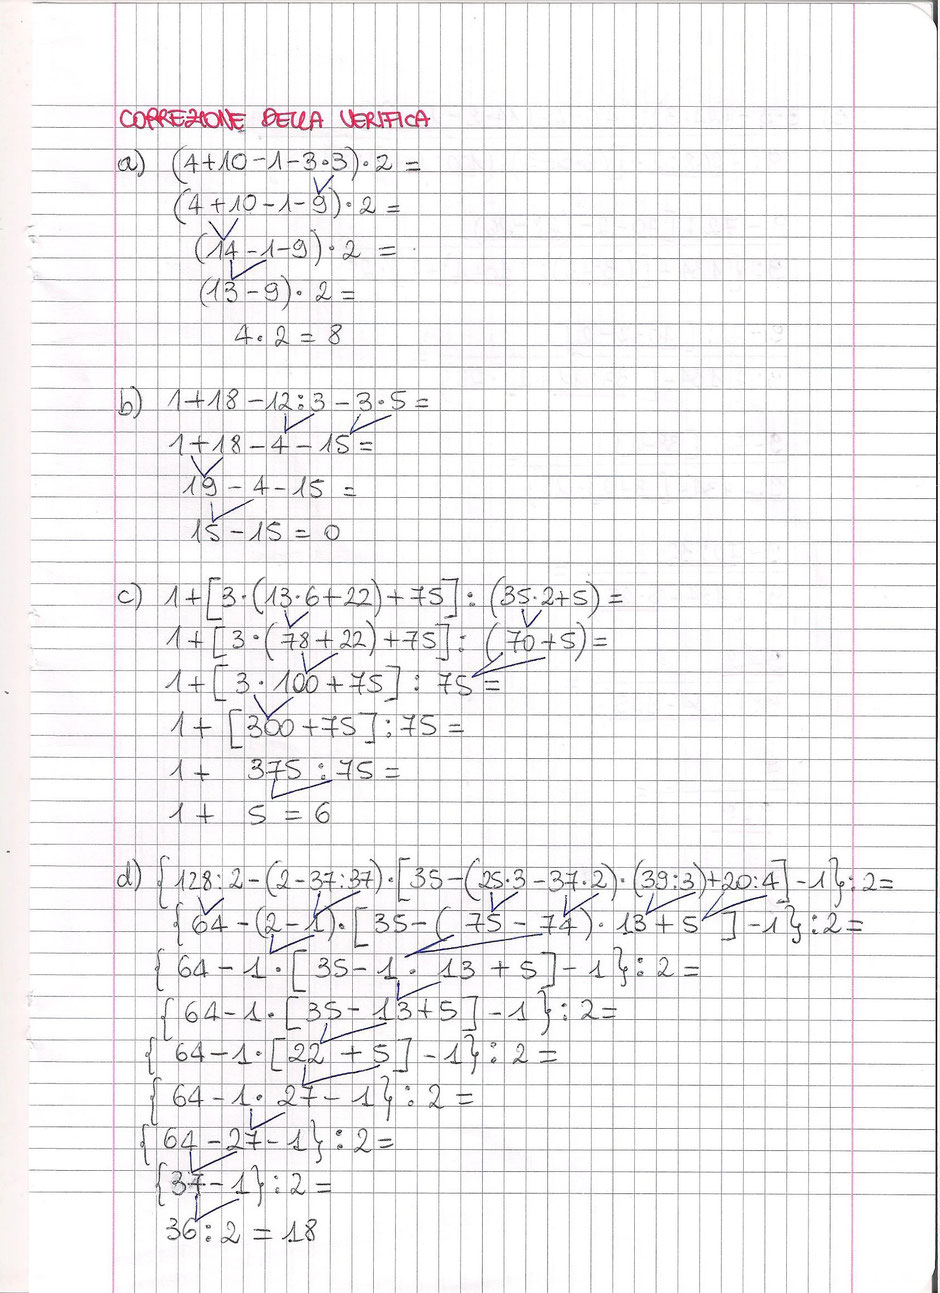 CORREZIONE DELLA VERIFICA
a) (4+10-1-3·3)·2 =
(4+10-1-9)·2 =
(14-1-9)·2 =
(13-9)·2 =
4·2 = 8
b) 1+18-12:3-3·5 =
1+18-4-15 =
19-4-15 =
15-15 = 0
c) 1+[3·(13·6+22)+75]:(35·2+5) =
1+[3·(78+22)+75]:(70+5) =
1+[3·100+75]:75 =
1+[300+75]:75 =
1+ 375:75 =
1+ 5 = 6
d) {128:2-(2-37:37)·[35-(25·3-37·2)·(39:3)+20:4]-1}:2 =
{64-(2-1)·[35-(75-74)·13+5]-1}:2 =
{64-1·[35-1·13+5]-1}:2 =
{64-1·[35-13+5]-1}:2 =
{64-1·[22+5]-1}:2 =
{64-1·27-1}:2 =
{64-27-1}:2 =
{37-1}:2 =
36:2 = 18